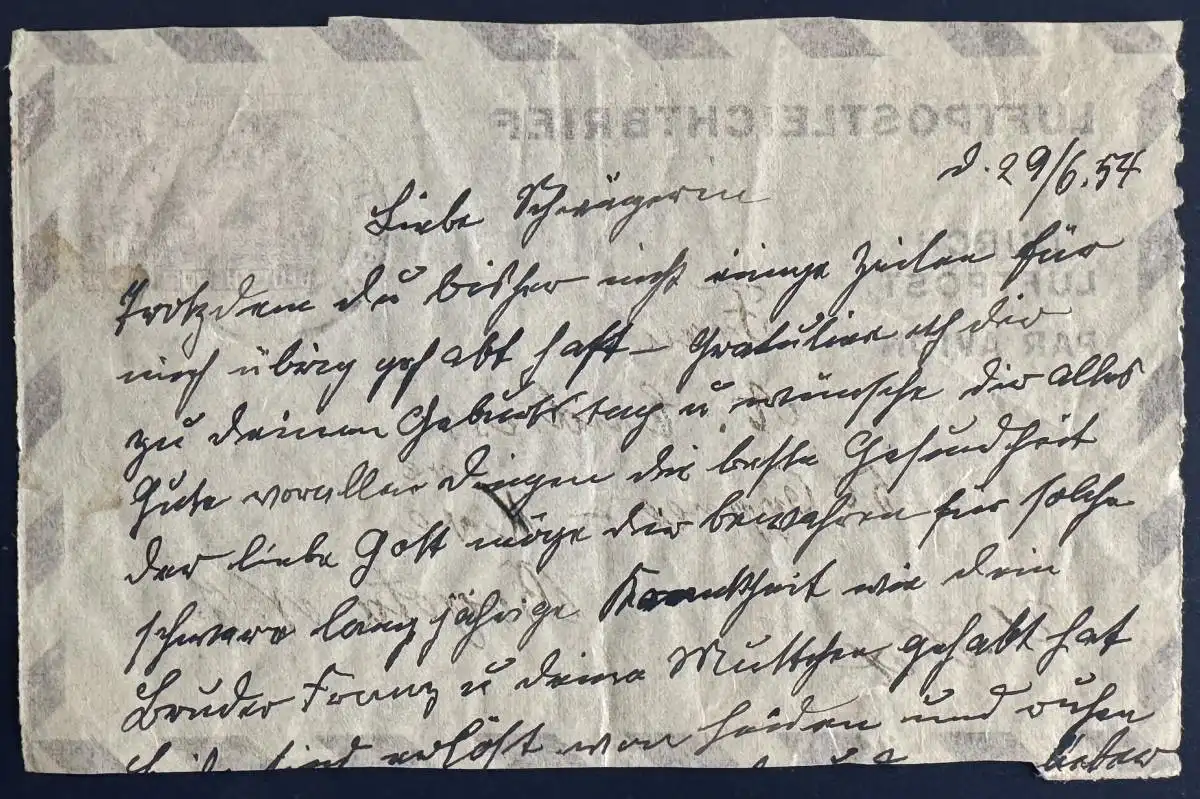 LUFTPOSTLEICHTBRIEF
d. 29/6.54
Liebe Schwägerin
LUFTPOST
PAR AVION
Trotzdem du bisher nicht einige Zeilen für
mich übrig gehabt hast – Gratuliere ich dir
zu deinen Geburtstag u wünsche dir alles
Gute vorallen Dingen die beste Gesundheit
der liebe Gott möge dir bewahren für solche
schwere langjährige Krankheit wie dein
Bruder Franz u deine Muttchen gehabt hat
Beide sind erlöst von Leiden und ruhen
lieber